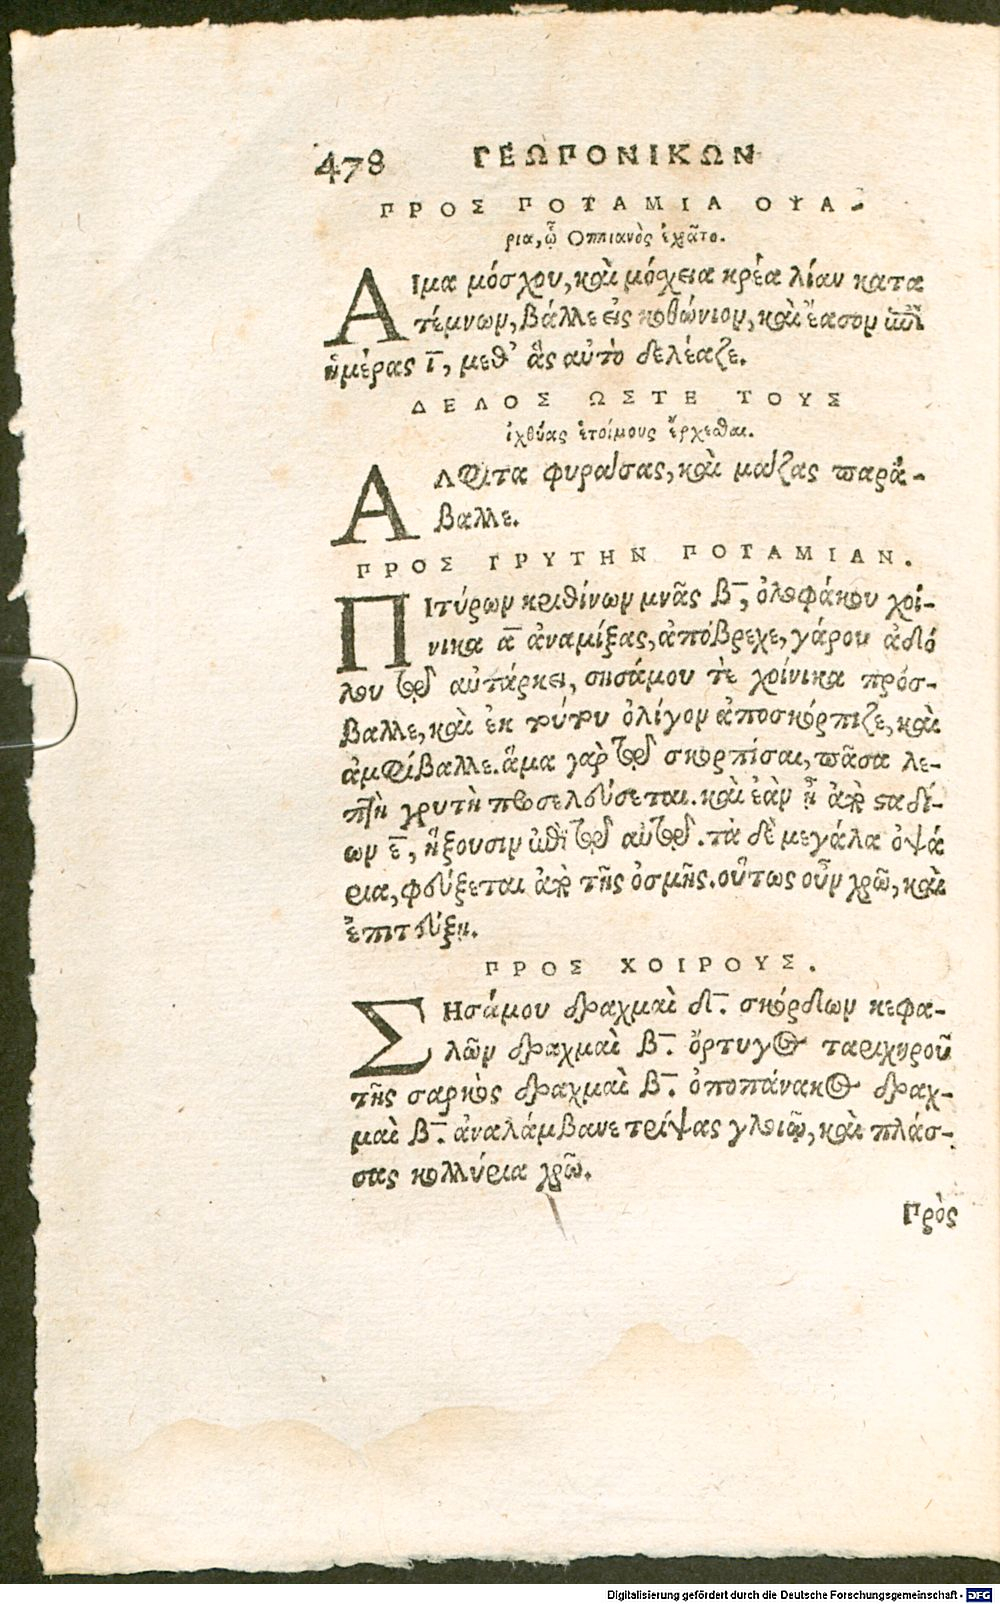 478 ΓΕΩΠΟΝΙΚΩΝ
ΠΡΟΣ ΠΟΤΑΜΙΑ ΟΨΑ-
ρια, ᾧ Οππιανὸς ἐχρᾶτο.
ΑΙμα μόσχου, καὶ μόχεια κρέα λίαν κατα
τέμνων, βάλλε εἰς κωθώνιον, καὶ ἔασον
ἡμέρας ῑ, μεθ᾽ ἃς αὐτὸ δελέαζε.
ΔΕΛΟΣ ΩΣΤΕ ΤΟΥΣ
ἰχθύας ἑτοίμους ἔρχεσθαι.
ΑΛφιτα φυράσας, καὶ μάζας παρά-
βαλλε.
ΠΡΟΣ ΓΡΥΤΗΝ ΠΟΤΑΜΙΑΝ.
ΠΙτύρων κριθίνων μνᾶς β̄, ὁλοφάκου χοί-
νικα ᾱ ἀναμίξας, ἀπόβρεχε, γάρου ἀδό
λου τῷ αὐτάρκει, σησάμου τὲ χοίνικα πρόσ-
βαλλε, καὶ ἐκ τούτου ὀλίγον ἀποσκόρπιζε, καὶ
ἀμφίβαλλε. ἅμα γὰρ τῷ σκορπίσαι, πᾶσα λε-
πτὴ γρυτὴ προσελεύσεται. καὶ ἐὰν ᾖ ἀπὸ σταδί-
ων ε̄, ἥξουσιν ἐπὶ τῷ αὐτῷ. τὰ δὲ μεγάλα ὀψά
ρια, φεύξεται ἀπὸ τῆς ὀσμῆς. οὕτως οὖν χρῶ, καὶ
ἐπιτεύξῃ.
ΠΡΟΣ ΧΟΙΡΟΥΣ.
ΣΗσάμου δραχμαὶ δ̄. σκόρδων κεφα-
λῶν δραχμαὶ β̄. ὄρτυγος ταριχηροῦ
τῆς σαρκὸς δραχμαὶ β̄. ὀποπάνακος δραχ-
μαὶ β̄. ἀναλάμβανε τρίψας γλοιῷ, καὶ πλάσ-
σας κολλύρια χρῶ.
Πρὸς
Digitalisierung gefördert durch die Deutsche Forschungsgemeinschaft - DFG